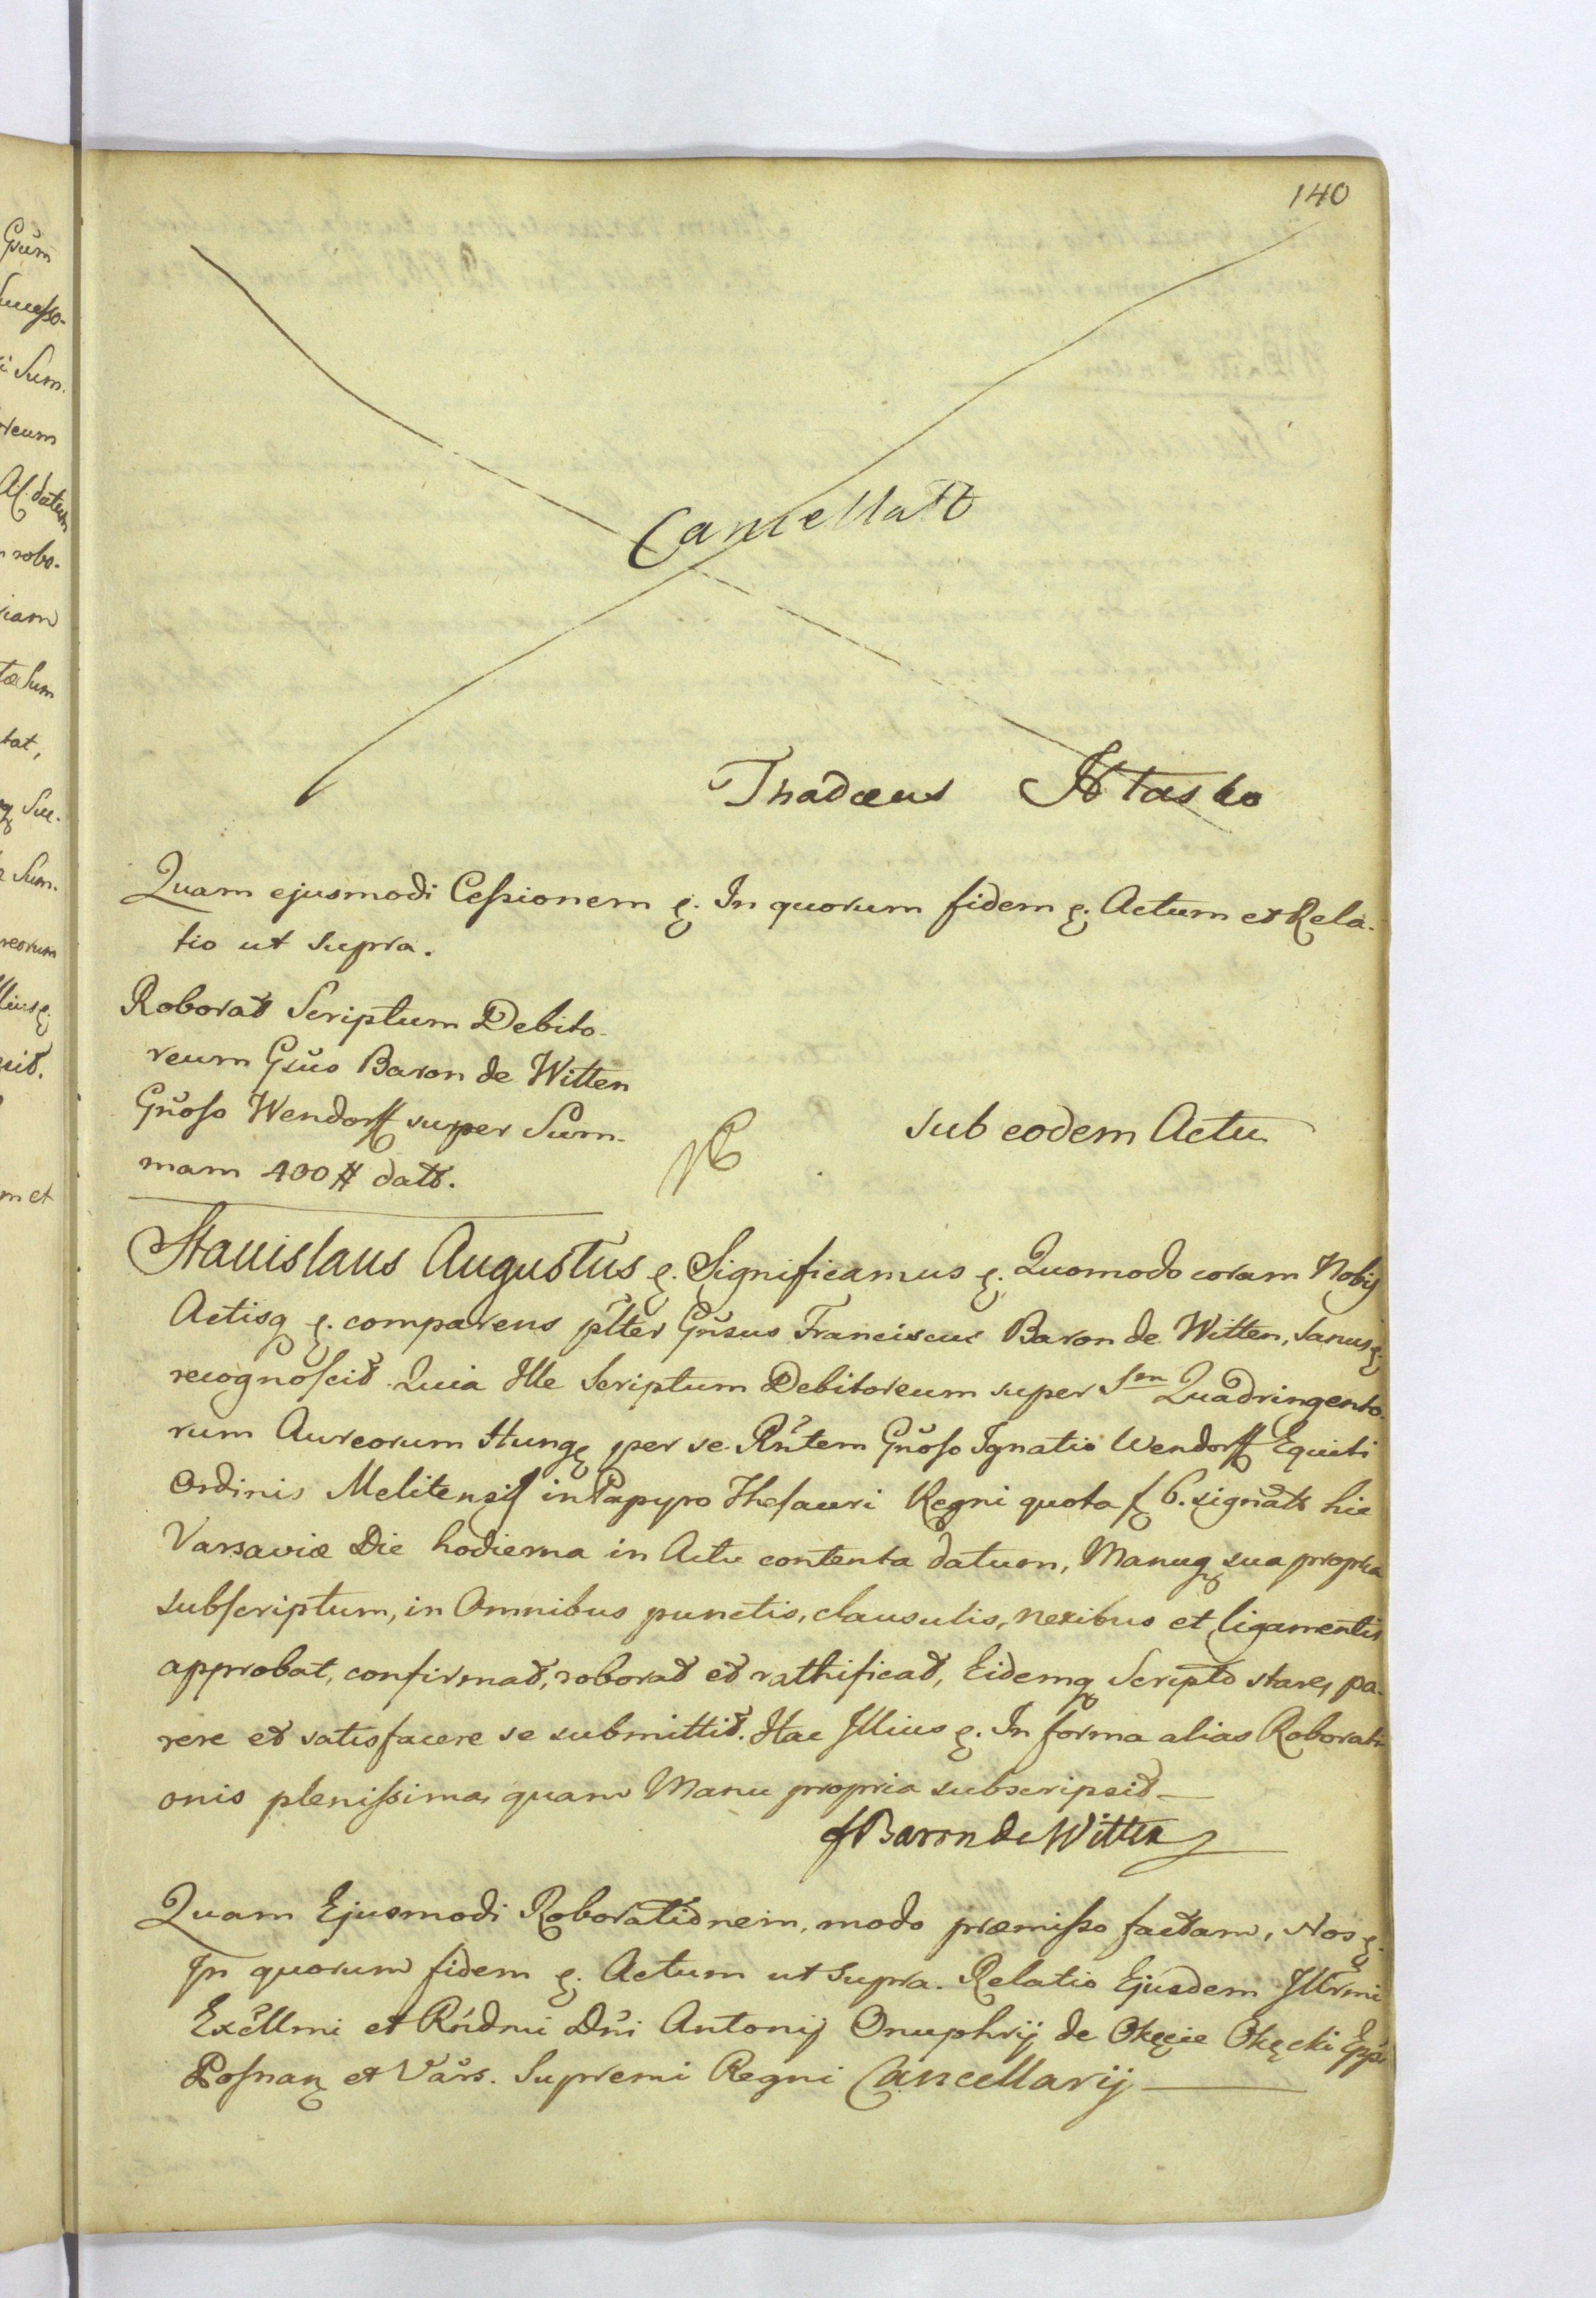 140
Cancellatt
Thadæus Htasko
Quam ejusmodi Cessionem &. In quorum fidem &. Actum et Rela-
tio ut supra.
Roborat Scriptum Debito-
reum Gnsus Baron de Witten
Gnoso Wendorff super Sum-
mam 400 # datt.
sub eodem Actu
Stanislaus Augustus &. Significamus &. Quomodo coram Nobis
Actisq &. comparens pslter Gnsus Franciscus Baron de Witten, sanus &.
recognoscit Quia Ille Scriptum Debitoreum super Sm Quadringento-
rum Aureorum Hung per se Rntem Gnoso Ignatio Wendorff Equiti
Ordinis Melitensis in Papyro Thesauri Regni quota f 6. signatt hic
Varsaviæ Die hodierna in Actu contenta datum, Manuq sua propria
subscriptum, in Omnibus punctis, clausulis, nexibus et ligamentis
approbat, confirmat, roborat et rathificat, Eidemq Scripto stare, pa-
rere et satisfacere se submittit. Hac Illius &. In forma alias Roborati-
onis plenissima, quam Manu propria subscripsit
f Baron de Witten
Quam Ejusmodi Roborationem, modo præmisso factam, Nos &.
In quorum fidem &. Actum ut supra. Relatio Ejusdem Illrmi
Excellmi et Rndmi Dni Antonij Onuphrij de Okęcie Okęcki Eppi
Posnan et Vars. Supremi Regni Cancellarij